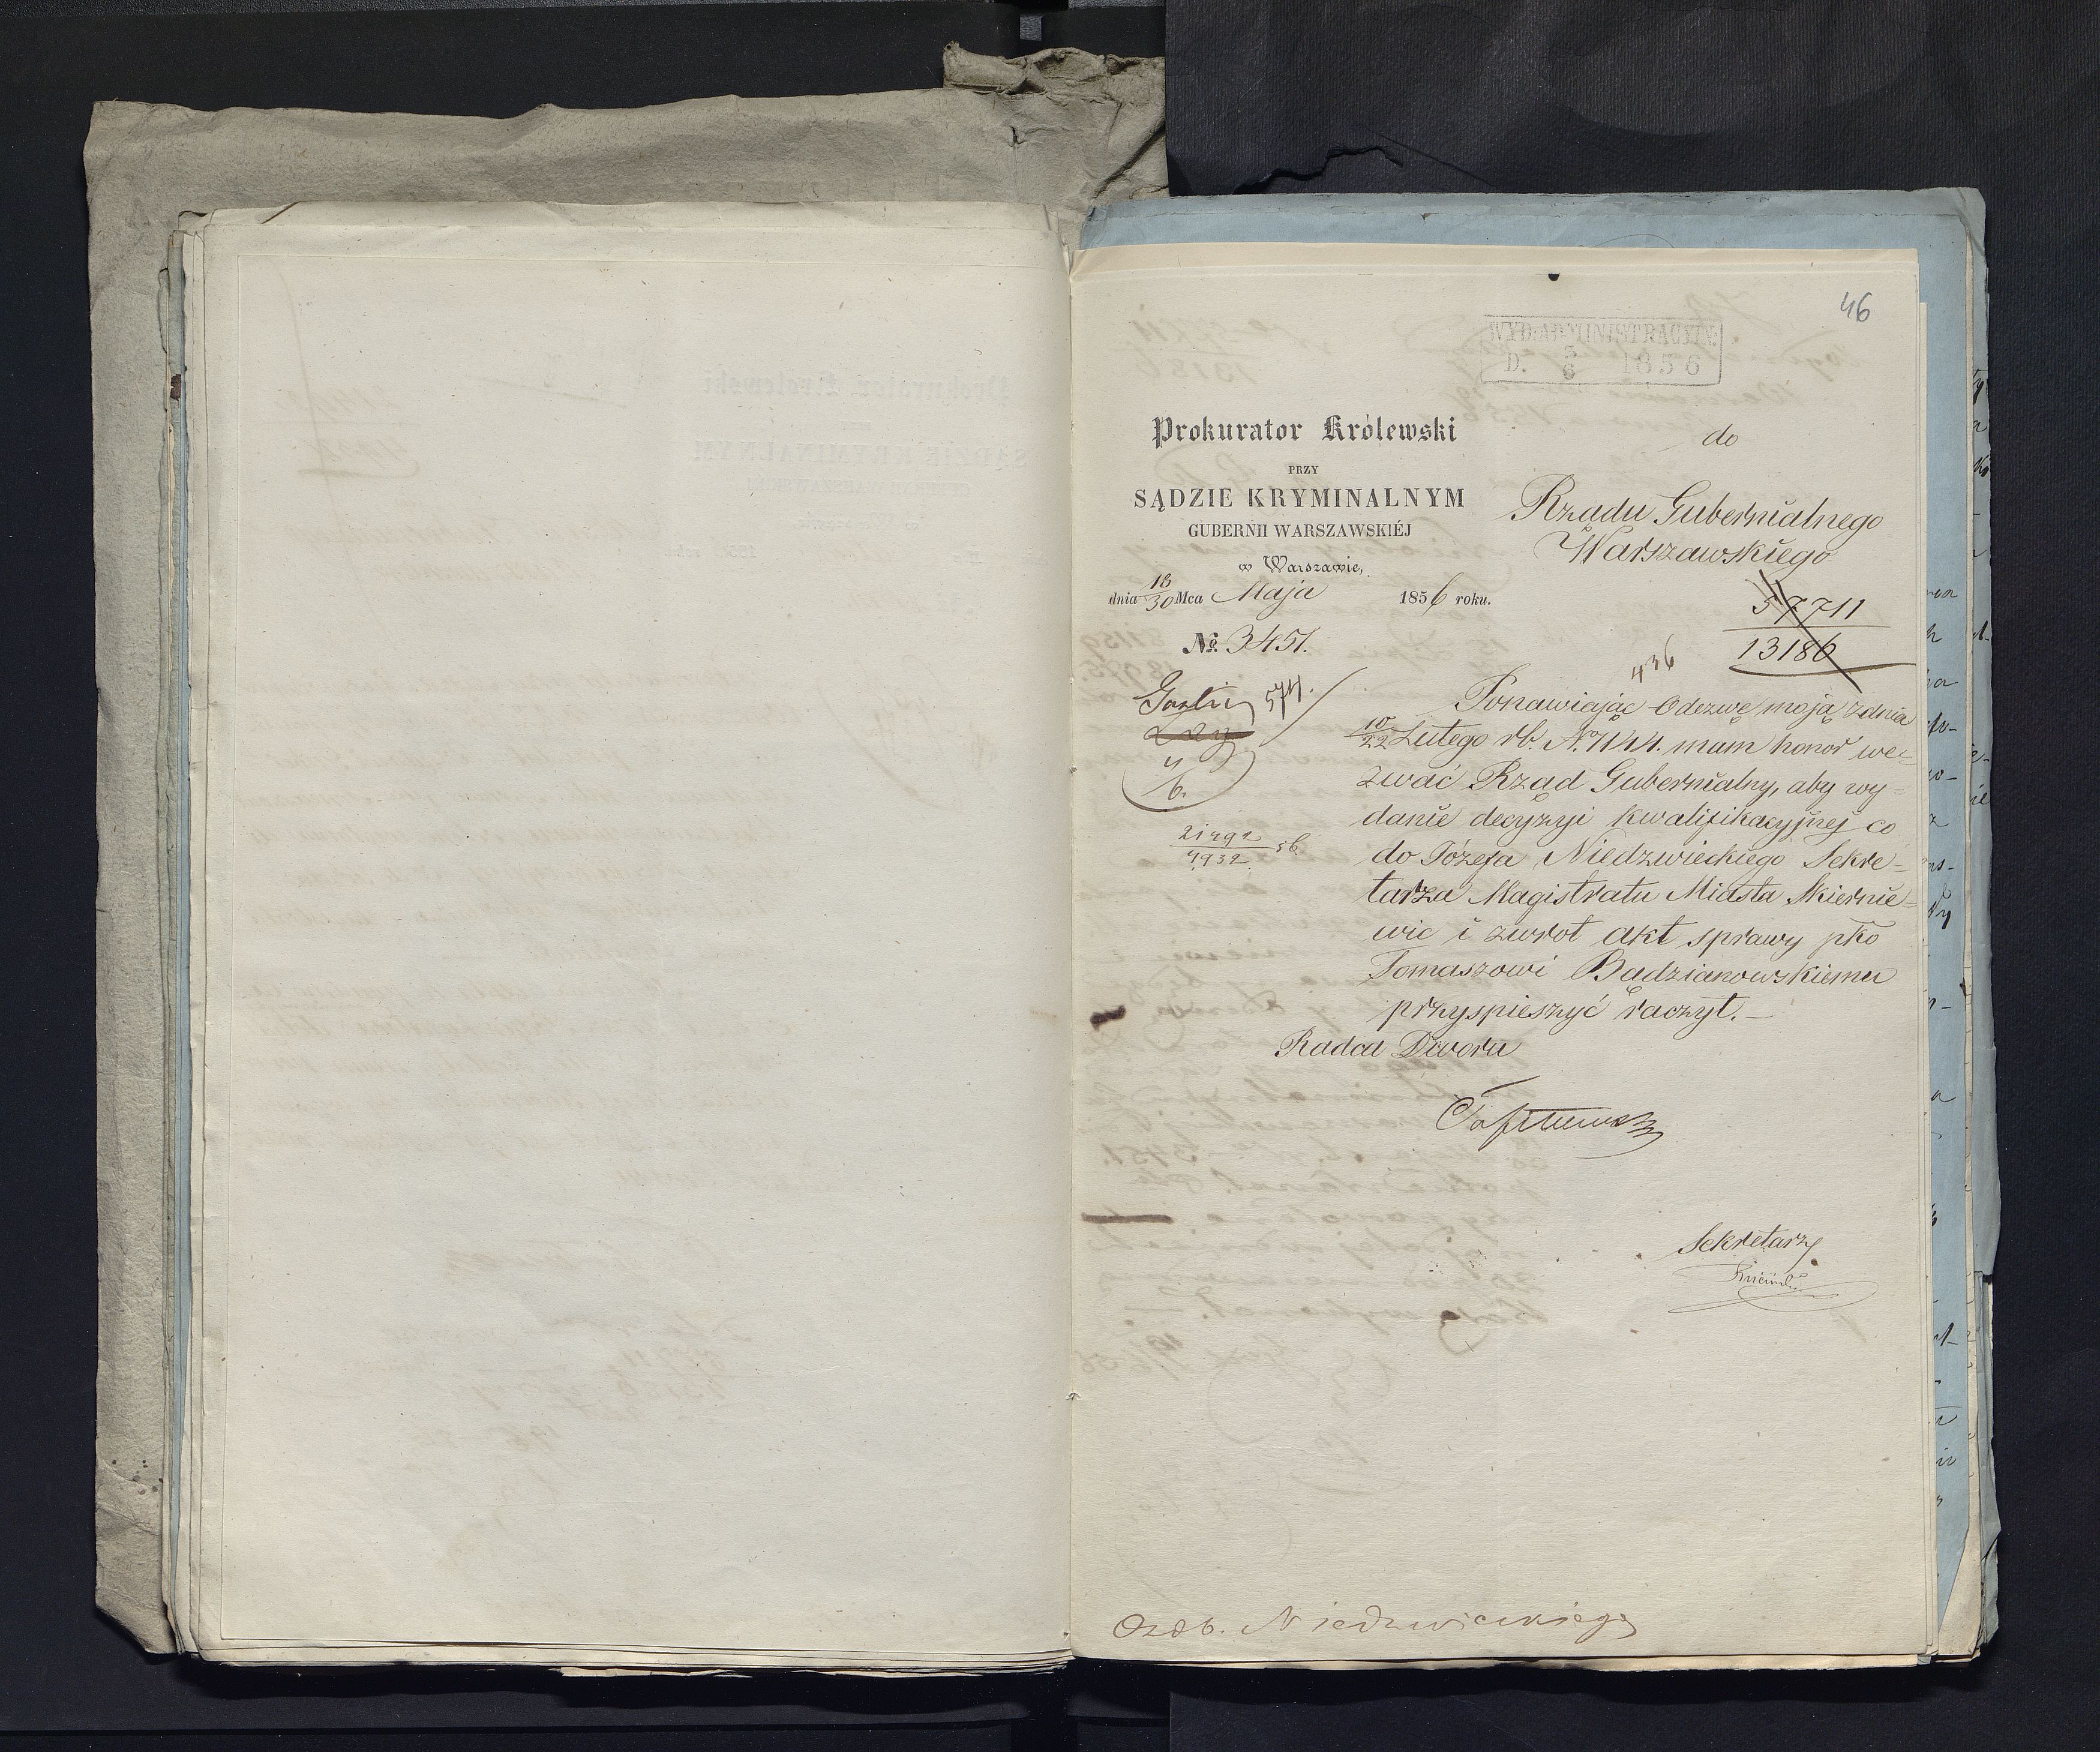 46
WYD: ADMINISTRACYJN:
D. 3/6 1856
Prokurator Królewski
PRZY
SĄDZIE KRYMINALNYM
GUBERNII WARSZAWSKIÉJ
w Warszawie,
dnia 18/30 Mca Maja 1856 roku.
№ 3451.
do
Rządu Gubernialnego
Warszawskiego
57711
13186
436
574.
4
6.
21292
4932 56
Ponawiając Odezwę moją z dnia
10/22 Lutego rb. N. 1144. mam honor we-
zwać Rząd Gubernialny, aby wy-
danie decyzyi kwalifikacyjnej co
do Józefa Niedzwieckiego Sekre-
tarza Magistratu Miasta Skiernie-
wic i zwrot akt sprawy pko
Tomaszowi Będzianowskiemu
przyspieszyć raczył. —
Radca Dworu
Sekretarz
Ozób. Niedzwieckiego